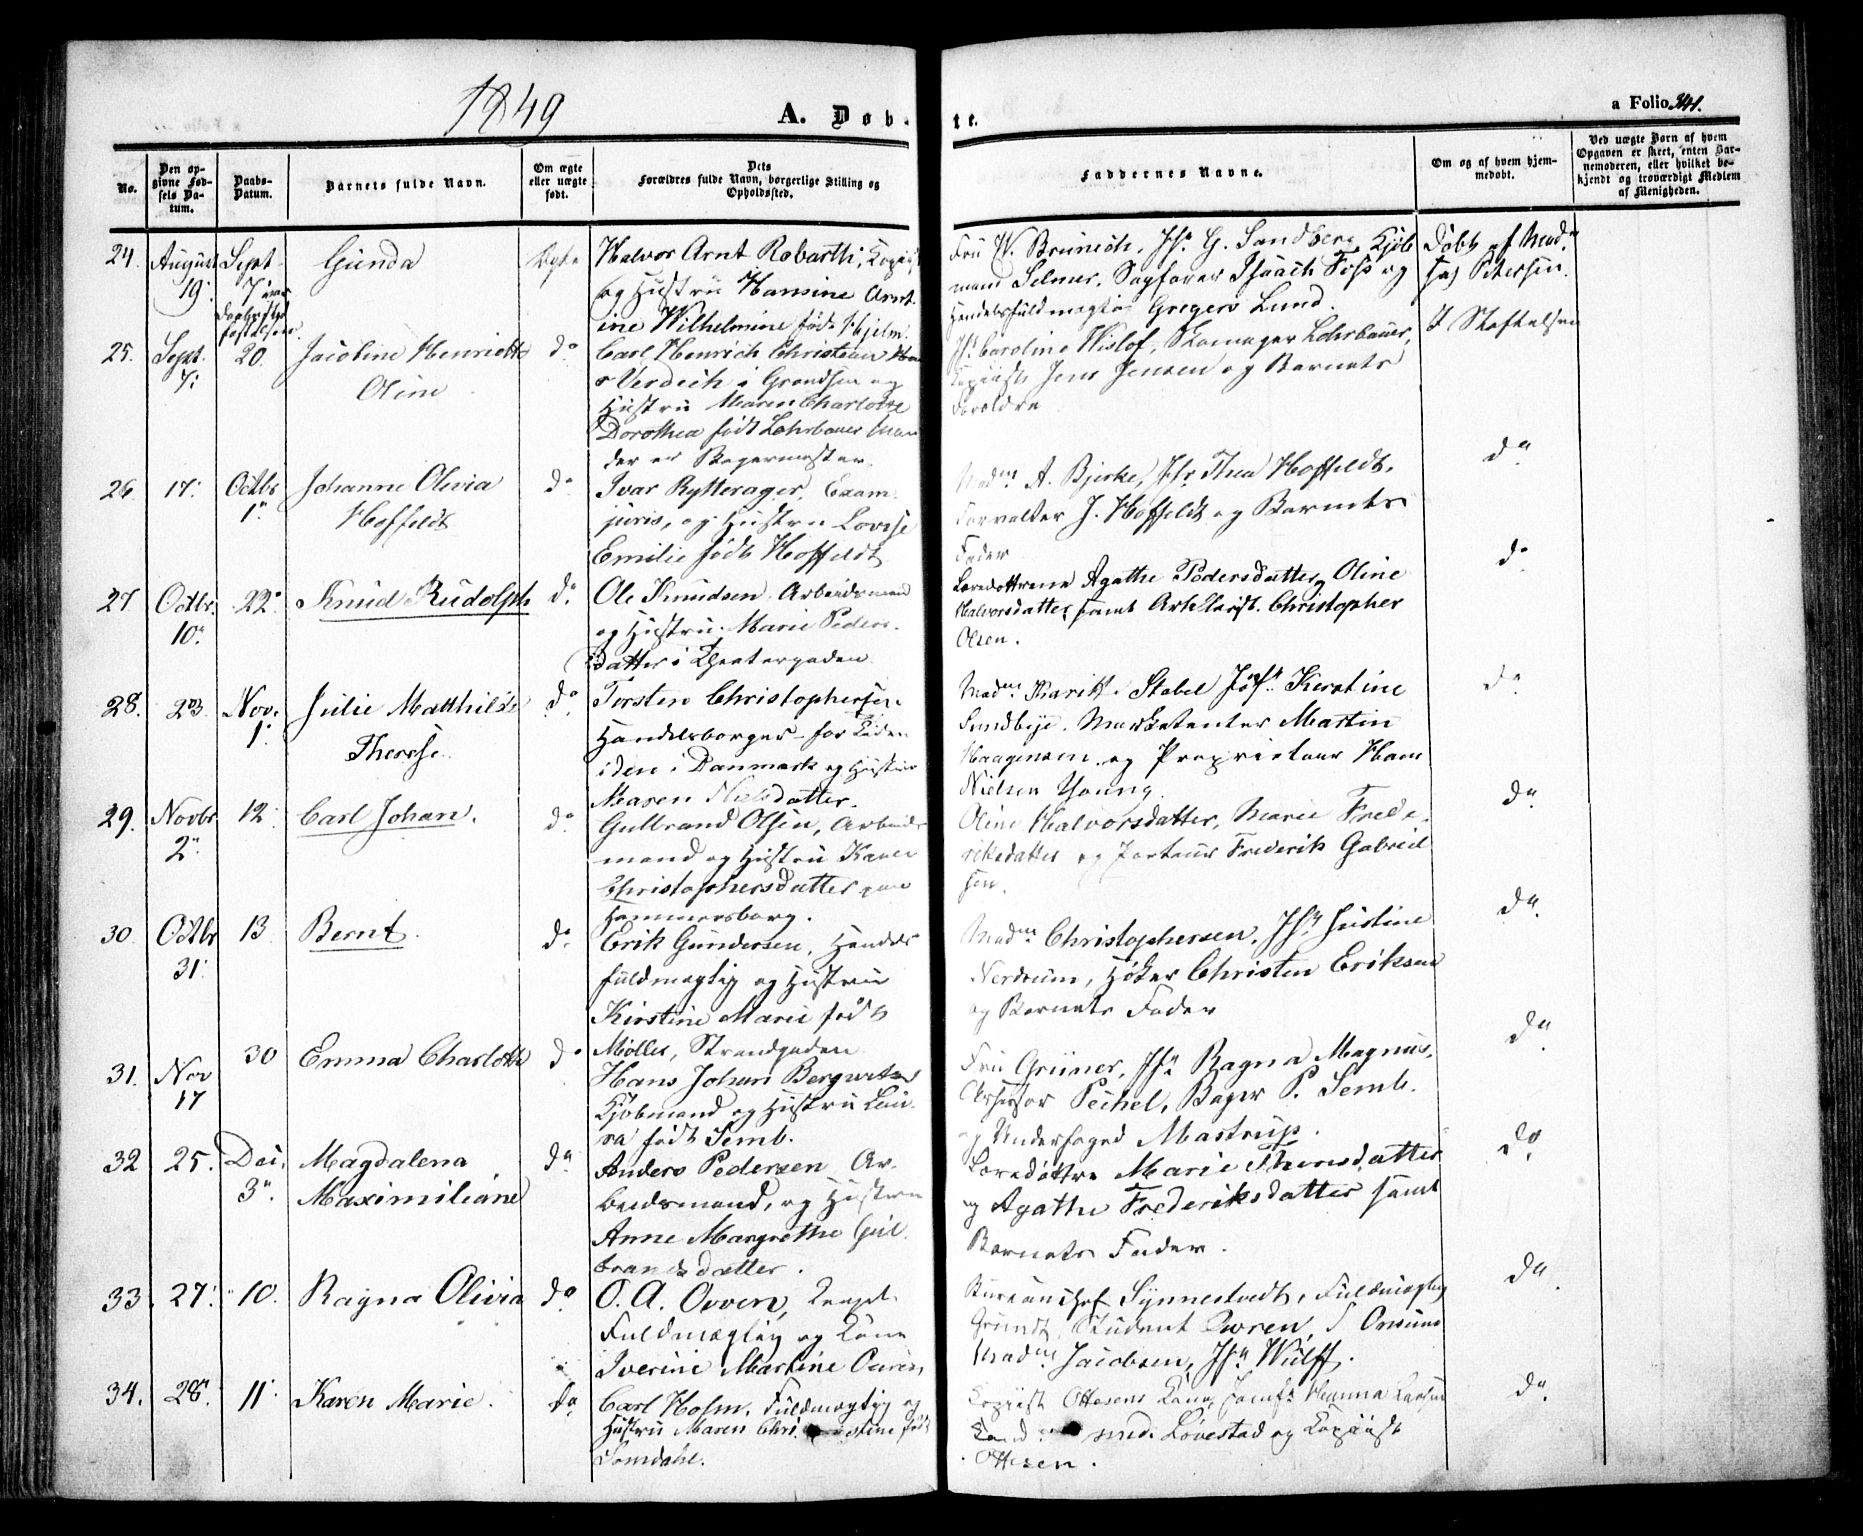 1849
A. Døbte.
a Folio 341.
No.
Den opgivne Fødsels Datum.
Daabs-Datum.
Barnets fulde Navn.
Om ægte eller uægte født.
Dets Forældres fulde Navn, borgerlige Stilling og Opholdssted.
Faddernes Navne.
Om og af hvem hjemmedøbt.
Ved uægte Børn af hvem Opgaven er skeet, enten Barnemoderen, eller hvilket bekjendt og troværdigt Medlem af Menigheden.
24. August 19. Sept. 7 Gunda Ægte
Halvor Arnt Robarth, Kopiist
og Hustru Hansine Arnt-
ine Wilhelmine født Hjelm.
Fru W. Brunech, Jfr. G. Sandberg, Kjøb-
mand Selmer, Sagfører Isaach Foss og
Handelsfuldmægtig Gregers Lund.
Døbt af Madm
Petersen.
I Stiftelsen
25. Sept. 7. 20. Jacobine Henriette
Oline
do
Carl Henrich Christian
Verdich i Grændsen og
Hustru Maren Charlotte
Dorothea født Lohrbauer
der er Bagermester.
Jfr. Caroline Wislof, Skomager Lohrbauer,
Kopiist Jens Jensen og Barnets
Forældre
26. 17. Octbr 1. Johanne Olivia
Hoffeldt
do
Ivar Rytterager, Exam.
juris, og Hustru Lovise
Emilie født Hoffeldt
Madm A. Bjerke, Jfr Thea Hoffeldt,
Forvalter J. Hoffeldt og Barnets
Fader
do
27 Octbr. 10. 22. Knud Rudolph do.
Ole Knudsen Arbeidsmand
og Hustru Marie Peders-
datter i Theatergaden
Læredøttrene Agathe Pedersdatter, Oline
Halvorsdatter, samt Christopher
Olsen.
do
28. 23. Nov. 1. Julie Matthilde
Therese
do.
Torsten Christophersen
Handelsborger for Tiden
i Danmark og Hustru
Maren Nielsdatter.
Madm Stabel Jfr. Kirstine
Sundbye. Marketenter Martin
Haagensen og Proprietair Hans
Nielsen Young.
do
29. Novbr 2. 12. Carl Johan. do.
Gulbrand Olsen, Arbeids-
mand og Hustru Karen
Christophersdatter paa
Hammersborg.
Oline Halvorsdatter, Marie Frede-
riksdatter og Frederik Gabriel-
sen.
do.
30. Octbr 31. 13. Bernt. do.
Erik Gundersen, Handels-
fuldmægtig og Hustru
Kirstine Marie født
Møller, Strandgaden
Madm Christophersen, Jfr Justine
Nerdrum, Høker Christen Eriksen
og Barnets Fader
do.
31. Nov 17 30 Emma Charlotte do
Hans Johan Bergwitz
Kjøbmand og Hustru Lau-
ra født Semb.
Fru Grüner, Jfr Ragna Magnus,
Assessor Peckel, Bager P. Semb.
og Underfoged Mastrup.
do.
32 25. Dec. 3. Magdalena
Maximiliane
do
Anders Pedersen Ar-
beidsmand, og Hustru
Anne Margrethe Gul-
brandsdatter.
Læredøttre Marie Thoresdatter
og Agathe Frederiksdatter samt
Barnets Fader.
do.
33. 27. 10. Ragna Olivia do
O. A. Owren,
Fuldmægtig og Kone
Iverine Martine
Bureauchef Synnestvedt, Fuldmægtig
Grundt, Student Owren,
Madm Jacobsen, Jfr Wulff.
do.
34. 28. 11. Karen Marie. do.
Carl Holm. Fuldmægtig og
Hustru Maren født
Lomdahl.
Kopiist Ottesens Kone, Jomfr Hanna
Cand. med. Løvestad og Kopiist
Ottesen.
do.